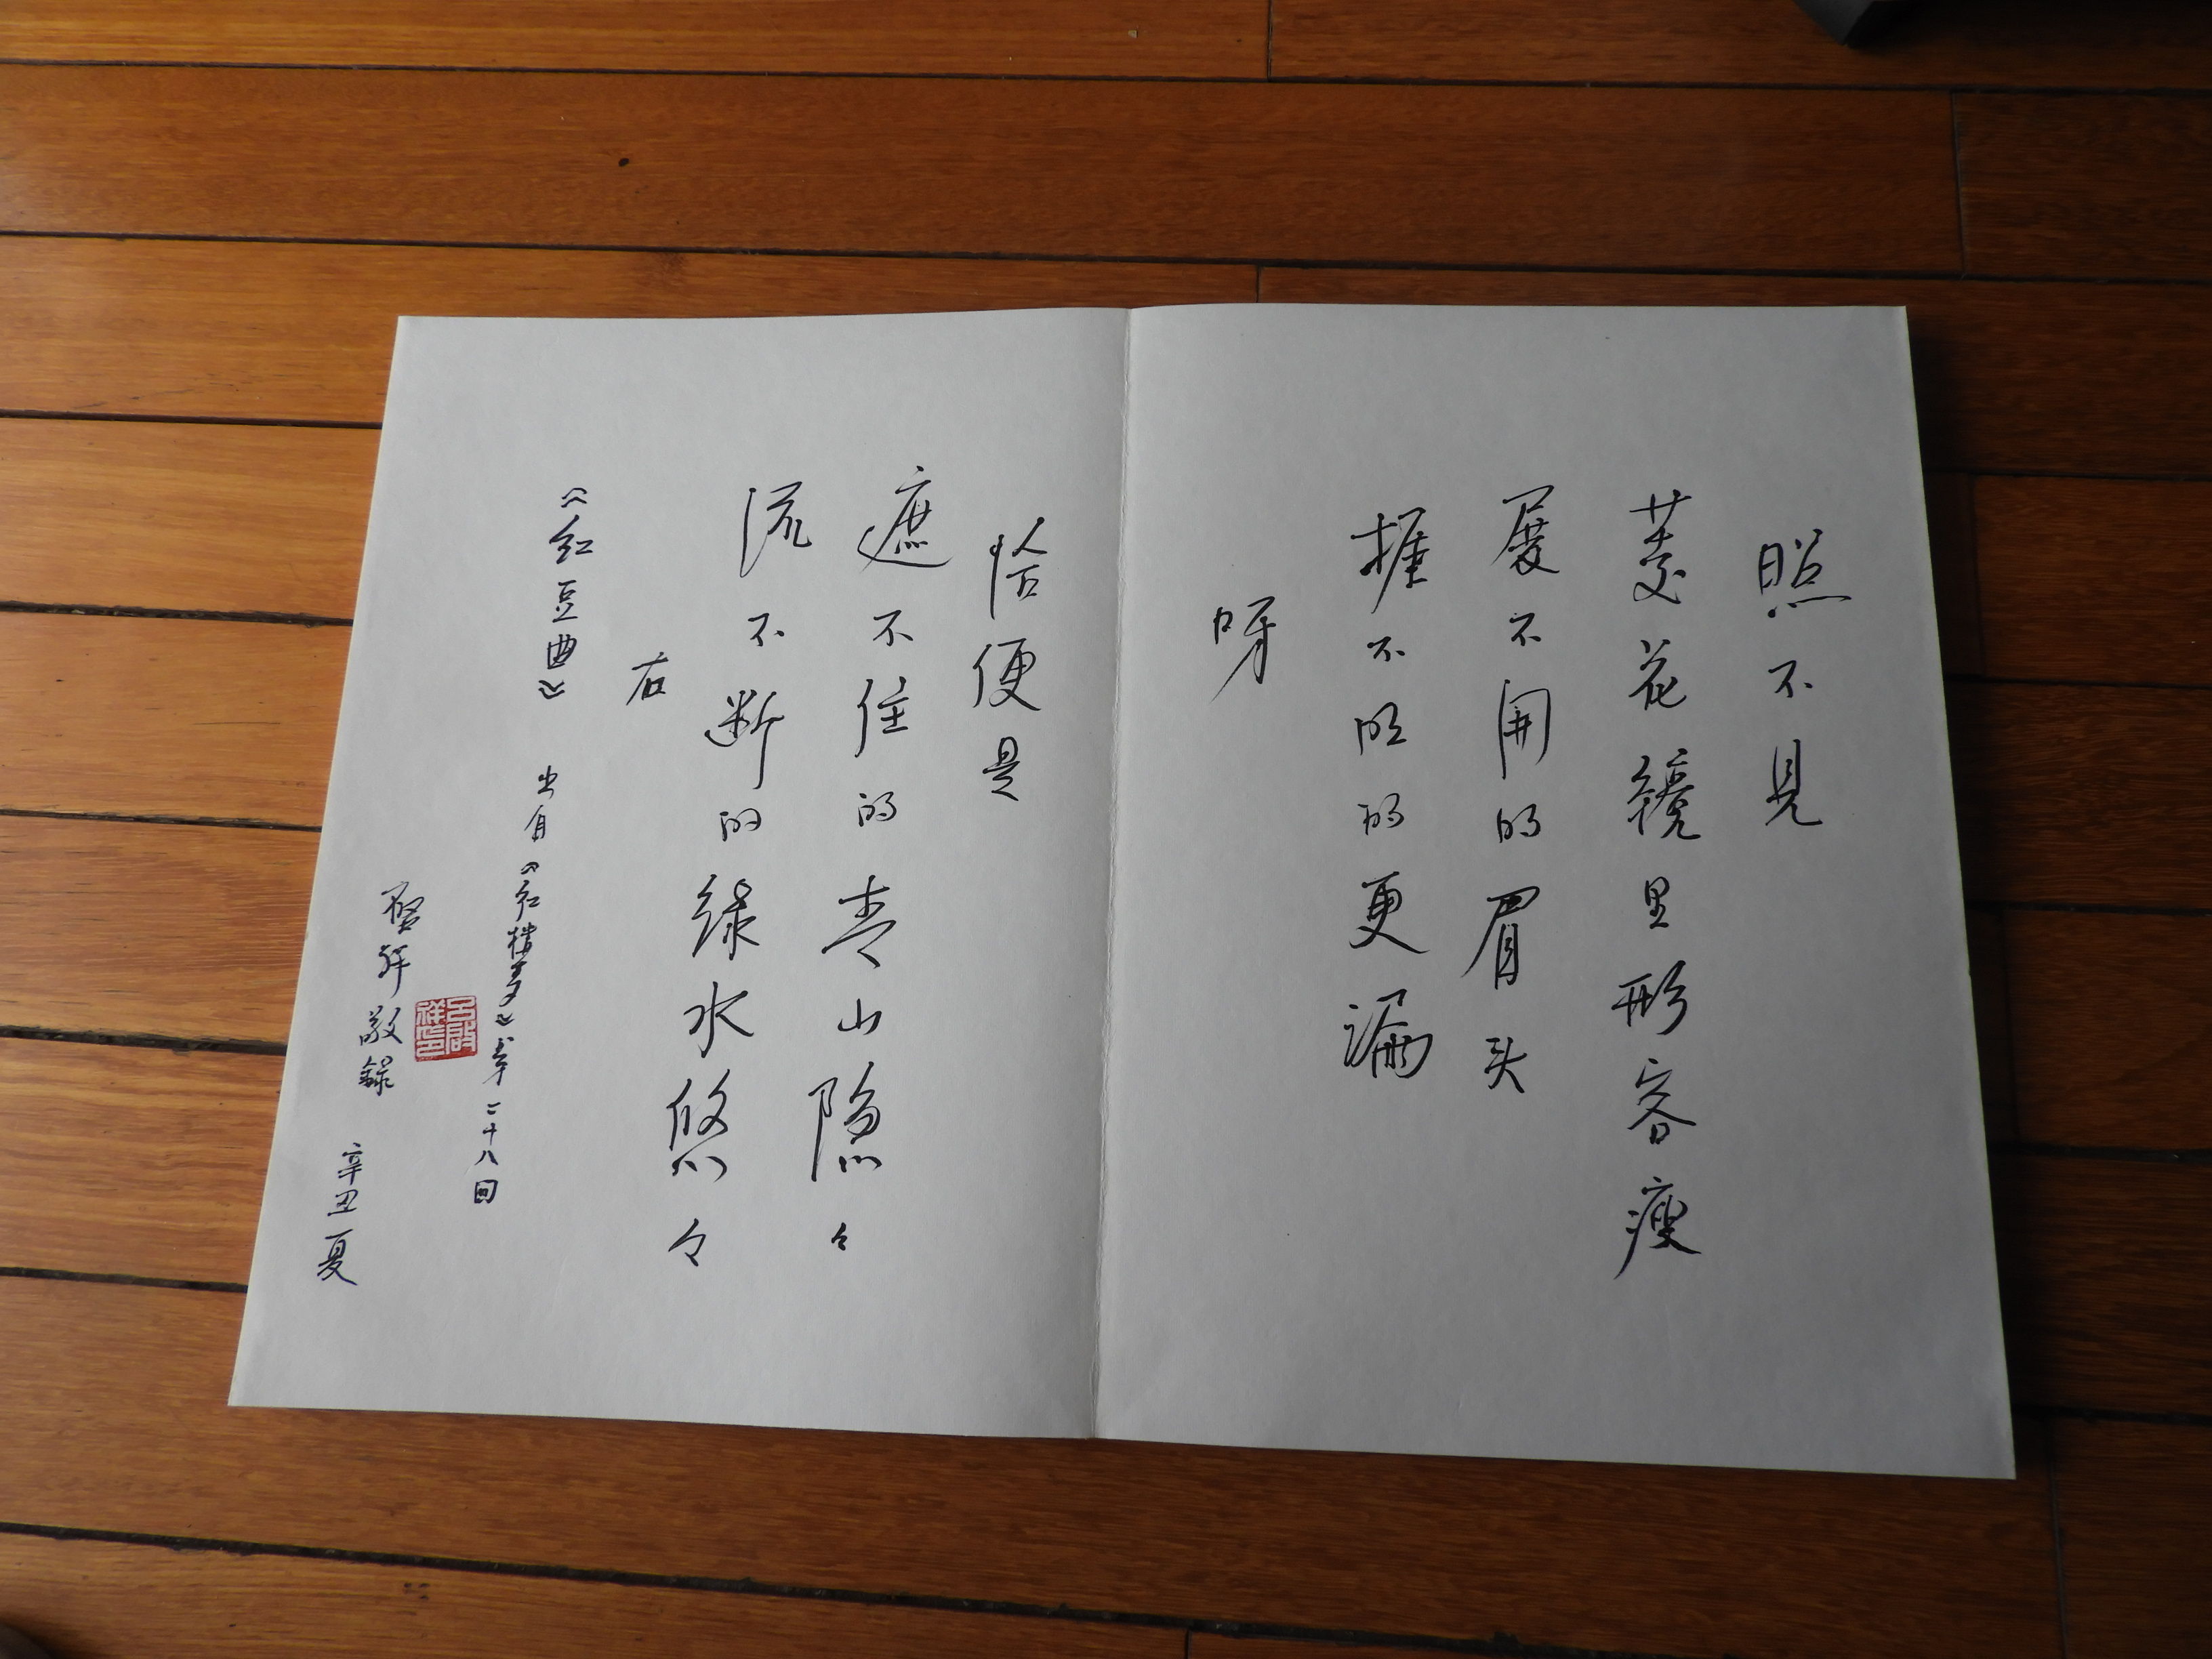 照不見
菱花镜里形容瘦
展不開的眉头
捱不明的更漏
呀
恰便是
遮不住的青山隐々
流不断的绿水悠々
右
《红豆曲》 出自《红楼梦》第二十八回
啟祥敬録 辛丑夏
吕啟祥印